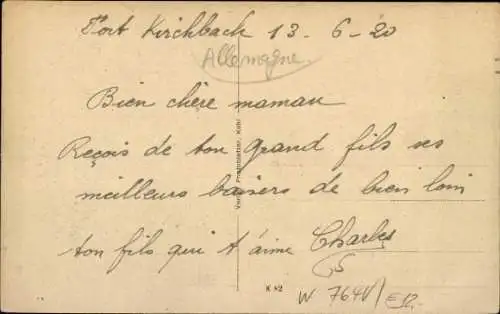 Fort Kirchbach 13-6-20
Allemagne.
Bien chère maman
Reçois de ton grand fils ses
meilleurs baisers de bien loin
ton fils qui t'aime Charles
K 82
W 7641/E12.